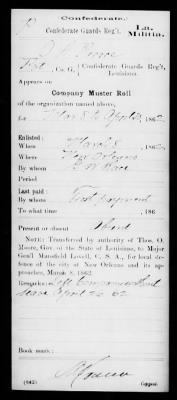 Confederate.
Confederate Guards Reg't. | La. Militia.
Co. G, | Confederate Guards Reg't, Louisiana.
Appears on
Company Muster Roll
of the organization named above,
for Mar 8 to April 30, 1862
Enlisted:
When March 8, 186
Where New Orleans
By whom
Period
Last paid:
By whom First Payment
To what time , 186
Present or absent
NOTE: Transferred by authority of Thos. O. Moore, Gov. of the State of Louisiana, to Major Gen'l Mansfield Lovell, C. S. A., for local defence of the city of New Orleans and its approaches, March 8, 1862.
Remarks: Left
April 62
Book mark:
(642) Copyist.